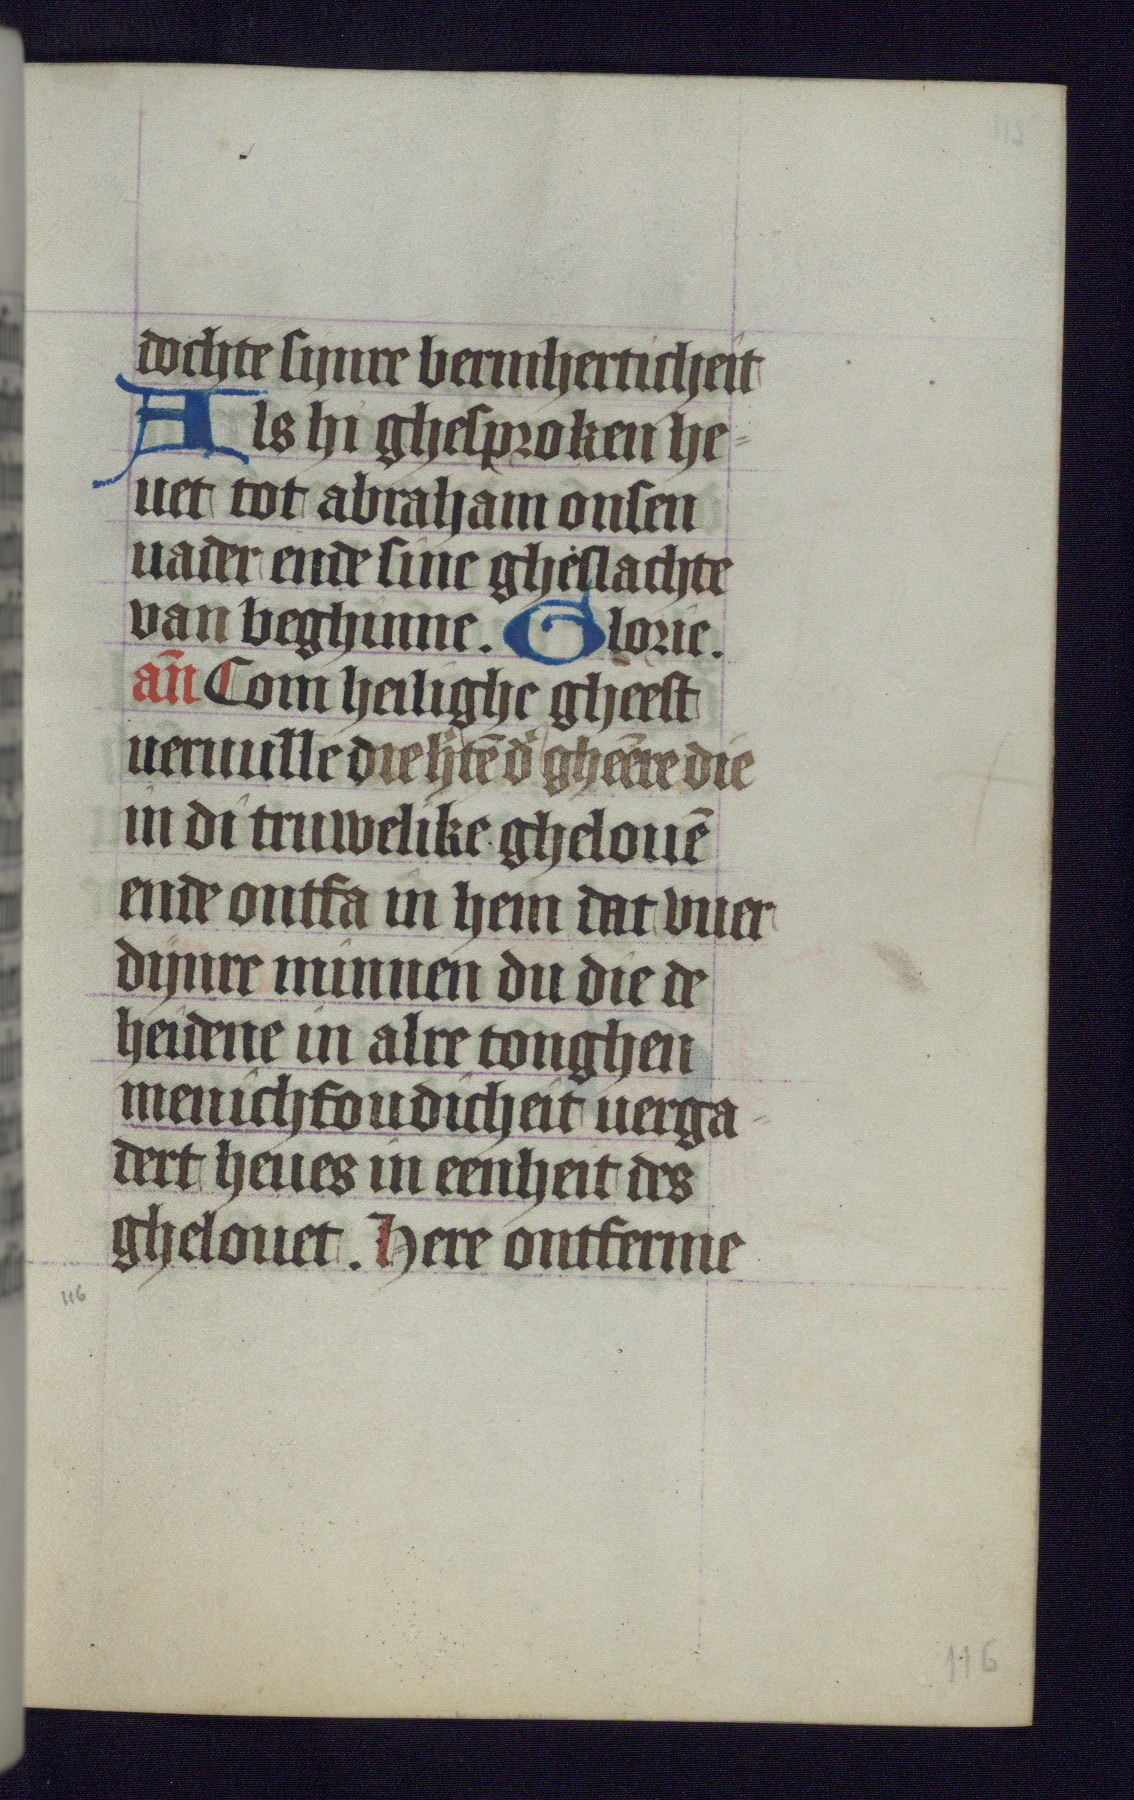 dochte sijnre bermherticheit
Als hi ghesproken he-
uet tot abraham onsen
uader ende sine gheslachte
van beghinne. Glorie.
an̄ Com heilighe gheest
ueruulle die h̄tē d' gheēre die
in di truwelike ghelouē
ende ontfa in hem dat vuer
dijnre minnen du die de
heidene in alre tonghen
menichfoudicheit uerga-
dert heues in eenheit des
ghelouet. Here ontferme
116
116